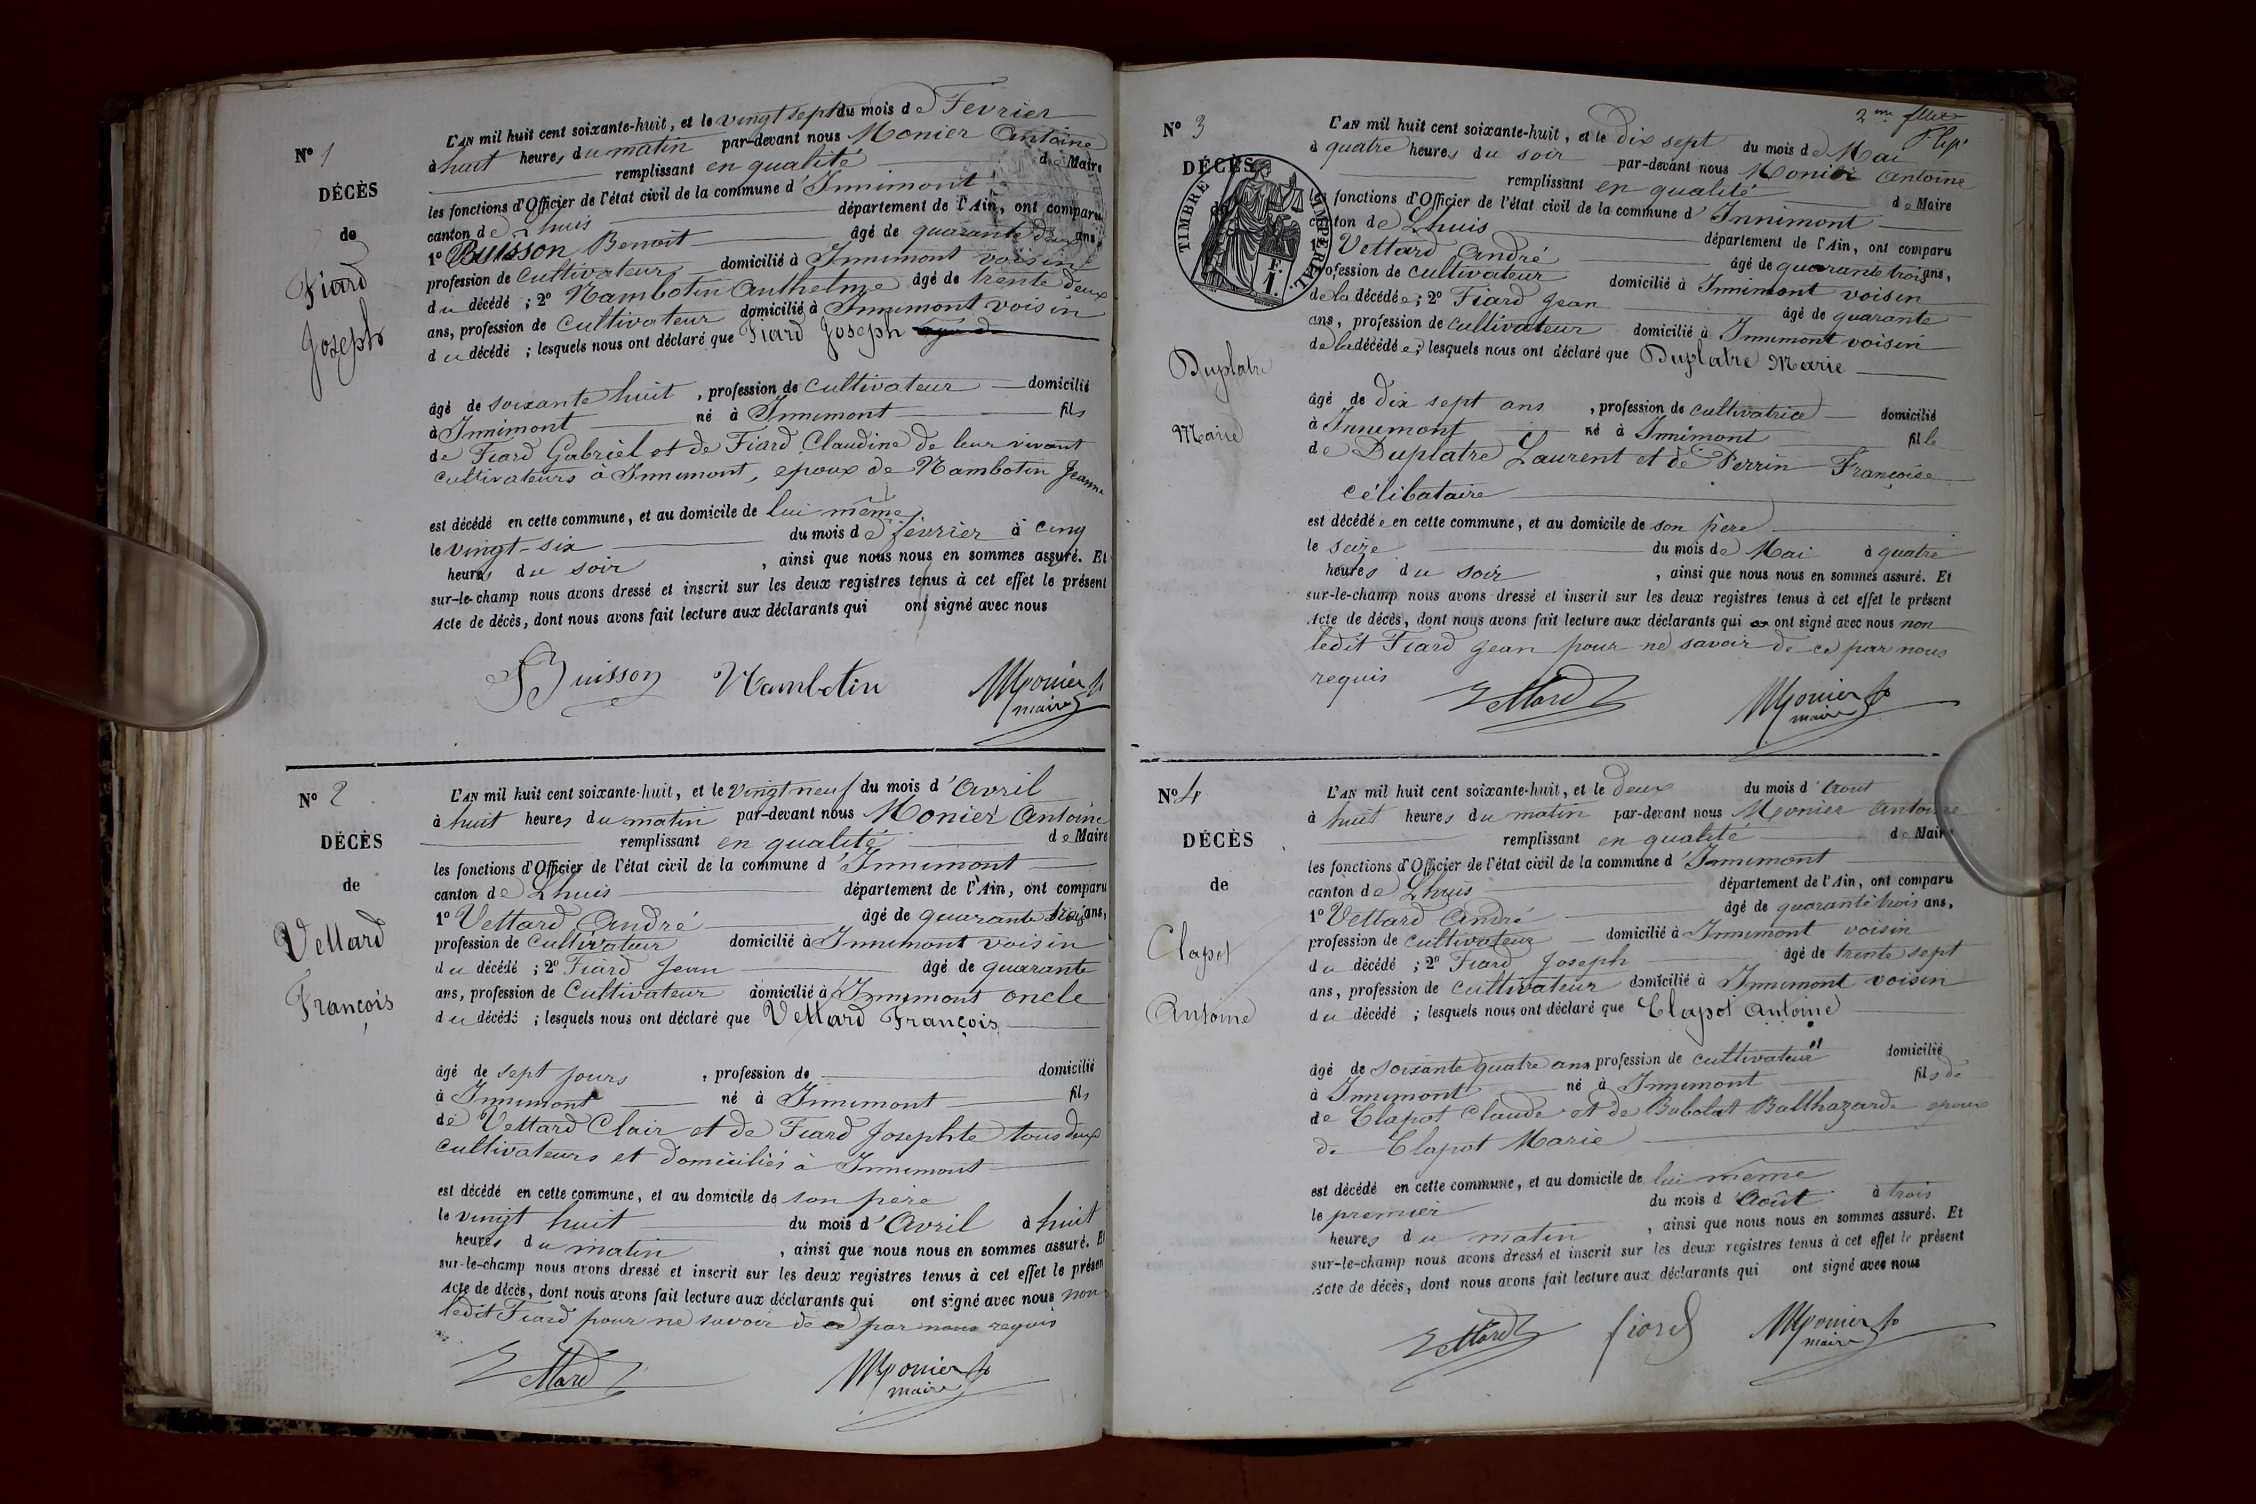 N° 1
DÉCÈS
de
Fiard
Joseph
L'AN mil huit cent soixante-huit, et le vingt sept du mois de Fevrier
à huit heures du matin par-devant nous Monier Antoine
remplissant en qualité de Maire
les fonctions d'Officier de l'état civil de la commune d'Innimont
canton de Lhuis département de l'Ain, ont comparu
1° Buisson Benoit âgé de quarante deux ans,
profession de Cultivateur domicilié à Innimont voisin
du décédé ; 2° Nambotin Anthelme âgé de trente deux
ans, profession de Cultivateur domicilié à Innimont voisin
du décédé ; lesquels nous ont déclaré que Fiard Joseph
âgé de soixante huit , profession de cultivateur domicilié
à Innimont né à Innimont fils
de Fiard Gabriel et de Fiard Claudine de leur vivant
cultivateurs à Innimont, epoux de Nambotin Jeanne
est décédé en cette commune, et au domicile de lui même
le vingt-six du mois de février à cinq
heures du soir , ainsi que nous nous en sommes assuré. Et
sur-le-champ nous avons dressé et inscrit sur les deux registres tenus à cet effet le présent
Acte de décès, dont nous avons fait lecture aux déclarants qui ont signé avec nous
Buisson Nambotin Monier
maire
N° 2
DÉCÈS
de
Vettard
François
L'AN mil huit cent soixante-huit, et le vingt neuf du mois d'Avril
à huit heures du matin par-devant nous Monier Antoine
remplissant en qualité de Maire
les fonctions d'Officier de l'état civil de la commune d'Innimont
canton de Lhuis département de l'Ain, ont comparu
1° Vettard André âgé de quarante trois ans,
profession de Cultivateur domicilié à Innimont voisin
du décédé ; 2° Fiard Jean âgé de quarante
ans, profession de Cultivateur domicilié à Innimont oncle
du décédé ; lesquels nous ont déclaré que Vettard François
âgé de sept jours , profession de domicilié
à Innimont né à Innimont fils
de Vettard Clair et de Fiard Josephte tous deux
cultivateurs et domiciliés à Innimont
est décédé en cette commune, et au domicile de son père
le vingt huit du mois d'Avril à huit
heures du matin , ainsi que nous nous en sommes assuré. Et
sur-le-champ nous avons dressé et inscrit sur les deux registres tenus à cet effet le présen
Acte de décès, dont nous avons fait lecture aux déclarants qui ont signé avec nous non
ledit Fiard pour ne savoir de ce par nous requis
Vettard Monier
maire
2me
N° 3
DÉCÈS
TIMBRE IMPERIAL
F. 1.
Duplatre
Marie
L'AN mil huit cent soixante-huit, et le dix sept du mois de Mai
à quatre heures du soir par-devant nous Monier Antoine
remplissant en qualité de Maire
les fonctions d'Officier de l'état civil de la commune d'Innimont
canton de Lhuis département de l'Ain, ont comparu
1° Vettard André âgé de quarante trois ans,
profession de cultivateur domicilié à Innimont voisin
de la décédée ; 2° Fiard Jean âgé de quarante
ans, profession de cultivateur domicilié à Innimont voisin
de la décédée ; lesquels nous ont déclaré que Duplatre Marie
âgé de dix sept ans , profession de cultivatrice domicilié
à Innimont né à Innimont fille
de Duplatre Laurent et de Perrin Françoise
célibataire
est décédée en cette commune, et au domicile de son père
le seize du mois de Mai à quatre
heures du soir , ainsi que nous nous en sommes assuré. Et
sur-le-champ nous avons dressé et inscrit sur les deux registres tenus à cet effet le présent
Acte de décès, dont nous avons fait lecture aux déclarants qui ont signé avec nous non
ledit Fiard Jean pour ne savoir de ce par nous
requis
Vettard Monier
maire
N° 4
DÉCÈS
de
Clapot
Antoine
L'AN mil huit cent soixante-huit, et le deux du mois d'Aout
à huit heures du matin par-devant nous Monier Antoine
remplissant en qualité de Maire
les fonctions d'Officier de l'état civil de la commune d'Innimont
canton de Lhuis département de l'Ain, ont comparu
1° Vettard André âgé de quarante trois ans,
profession de cultivateur domicilié à Innimont voisin
du décédé ; 2° Fiard Joseph âgé de trente sept
ans, profession de cultivateur domicilié à Innimont voisin
du décédé ; lesquels nous ont déclaré que Clapot Antoine
âgé de soixante quatre ans profession de cultivateur domicilié
à Innimont né à Innimont fils de
de Clapot Claude et de Babolat Balthazarde epoux
de Clapot Marie
est décédé en cette commune, et au domicile de lui même
le premier du mois d'Août à trois
heures du matin , ainsi que nous nous en sommes assuré. Et
sur-le-champ nous avons dressé et inscrit sur les deux registres tenus à cet effet le présent
Acte de décès, dont nous avons fait lecture aux déclarants qui ont signé avec nous
Vettard fiard Monier
maire